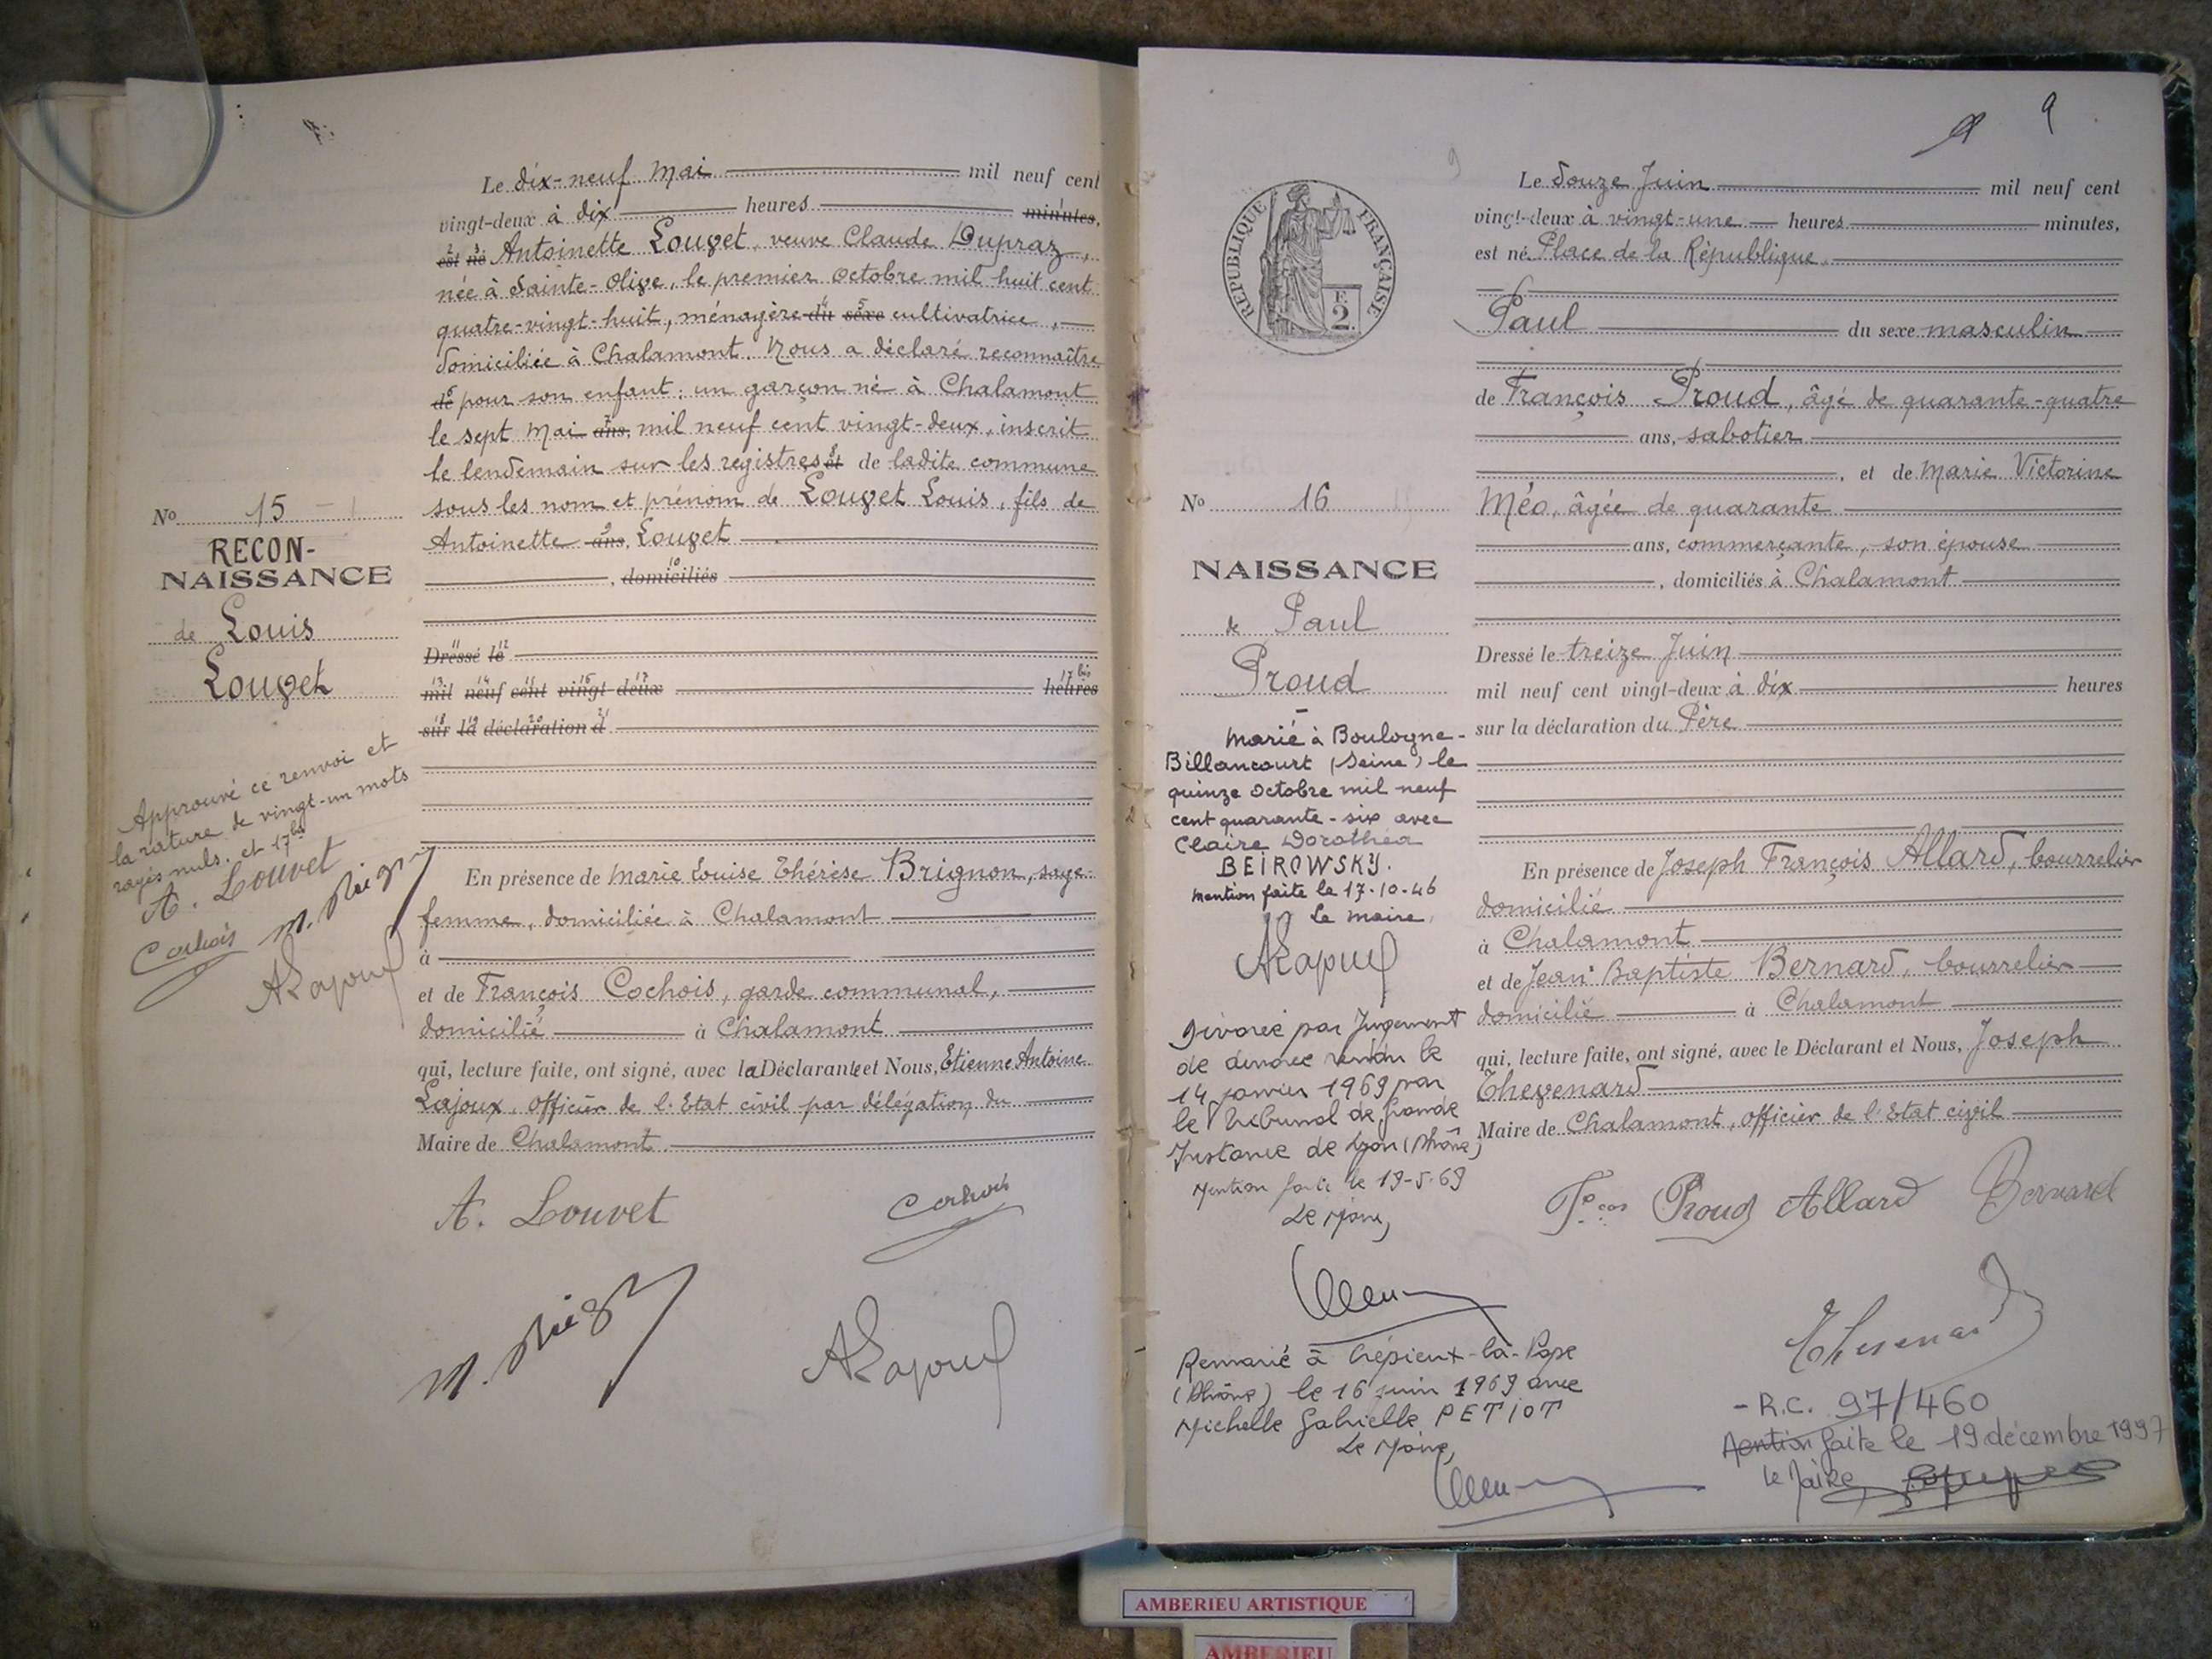 Le dix-neuf Mai mil neuf cent
vingt-deux à dix heures minutes,
est né Antoinette Louvet, veuve Claude Dupraz,
née à Sainte-Olive, le premier octobre mil huit cent
quatre-vingt-huit, ménagère du sexe cultivatrice,
domiciliée à Chalamont. Nous a déclaré reconnaître
de pour son enfant: un garçon né à Chalamont
le sept Mai ans, mil neuf cent vingt-deux, inscrit
le lendemain sur les registres et de ladite commune
sous les nom et prénom de Louvet Louis, fils de
Antoinette ans, Louvet
, domiciliés
Dressé le
mil neuf cent vingt-deux heures
sur la déclaration d
En présence de Marie Louise Thérèse Brignon, sage-
femme, domiciliée à Chalamont
à
et de François Cochois, garde communal,
domicilié à Chalamont
qui, lecture faite, ont signé, avec la Déclarante et Nous, Etienne Antoine
Lajoux, officier de l'Etat civil par délégation du
Maire de Chalamont.
A. Louvet
Cochois
ALajoux
No 15
RECON-
NAISSANCE
de Louis
Louvet
Approuvé ce renvoi et
la rature de vingt-un mots
rayés nuls. et 17 bis
A. Louvet
Cochois
ALajoux
9
REPUBLIQUE FRANÇAISE
E.
2
Le douze Juin mil neuf cent
vingt-deux à vingt-une heures minutes,
est né Place de la République
Paul du sexe masculin
de François Proud, âgé de quarante-quatre
ans, sabotier
, et de Marie Victorine
Méo, âgée de quarante
ans, commerçante, son épouse
, domiciliés à Chalamont
Dressé le treize Juin
mil neuf cent vingt-deux à dix heures
sur la déclaration du Père
En présence de Joseph François Allard, bourrelier
domicilié
à Chalamont
et de Jean Baptiste Bernard, bourrelier
domicilié à Chalamont
qui, lecture faite, ont signé, avec le Déclarant et Nous, Joseph
Thevenard
Maire de Chalamont, officier de l'Etat civil
Proud Allard Bernard
Thevenard
No 16
NAISSANCE
de Paul
Proud
Marié à Boulogne-
Billancourt (Seine) le
quinze octobre mil neuf
cent quarante-six avec
Claire Dorothéa
BEIROWSKY.
Mention faite le 17-10-46
Le Maire,
ALajoux
Divorcé par Jugement
de divorce rendu le
14 janvier 1969 par
le Tribunal de Grande
Instance de Lyon (Rhône)
Mention faite le 19-5-69
Le Maire,
Remarié à Crépieux-la-Pape
(Rhône) le 16 juin 1969 avec
Michelle Gabrielle PETIOT
Le Maire,
- R.C. 97/460
Mention faite le 19 décembre 1997
Le Maire
AMBERIEU ARTISTIQUE
AMBERIEU